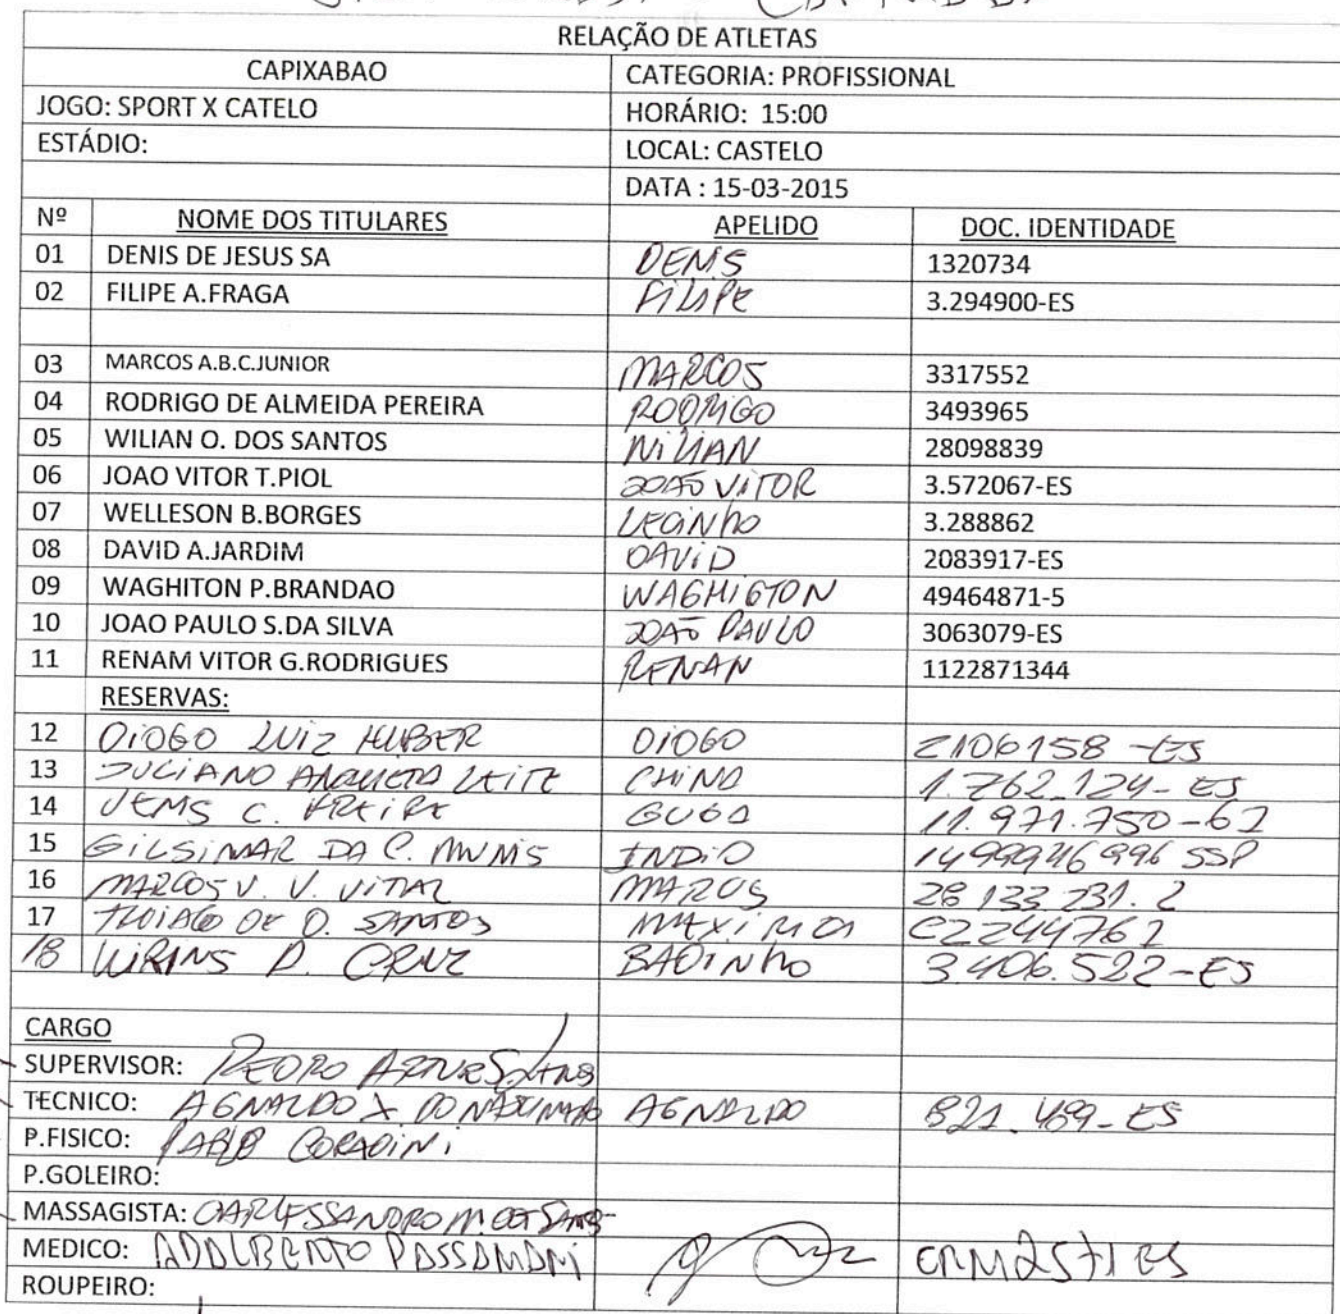 RELAÇÃO DE ATLETAS
CAPIXABAO CATEGORIA: PROFISSIONAL
JOGO: SPORT X CATELO HORÁRIO: 15:00
ESTÁDIO: LOCAL: CASTELO
DATA : 15-03-2015
Nº NOME DOS TITULARES APELIDO DOC. IDENTIDADE
01 DENIS DE JESUS SA DENIS 1320734
02 FILIPE A.FRAGA FILIPE 3.294900-ES
03 MARCOS A.B.C.JUNIOR MARCOS 3317552
04 RODRIGO DE ALMEIDA PEREIRA RODRIGO 3493965
05 WILIAN O. DOS SANTOS WILIAN 28098839
06 JOAO VITOR T.PIOL JOAO VITOR 3.572067-ES
07 WELLESON B.BORGES LECINHO 3.288862
08 DAVID A.JARDIM DAVID 2083917-ES
09 WAGHITON P.BRANDAO WAGHIGTON 49464871-5
10 JOAO PAULO S.DA SILVA JOAO PAULO 3063079-ES
11 RENAM VITOR G.RODRIGUES RENAN 1122871344
RESERVAS:
12 DIOGO LUIZ HUBER DIOGO 2106158-ES
13 JULIANO ANCHIETA LEITE CHINA 1.762.124-ES
14 C. FREIRE GUGA 11.971.750-62
15 GILSIMAR DA C. MUNIS INDIO 1499946996 SSP
16 MARCOS V. V. VITAL MARCOS 28.133.231.2
17 THIAGO DE O. SANTOS 02244762
18 D. CRUZ BADINHO 3.406.522-ES
CARGO
SUPERVISOR: PEDRO
TECNICO: AGNALDO X. AGNALDO 821.489-ES
P.FISICO: PABLO CORADINI
P.GOLEIRO:
MASSAGISTA: CARLESSANDRO M.
MEDICO: ADALBERTO PASSAMANI CRM 2571 ES
ROUPEIRO: